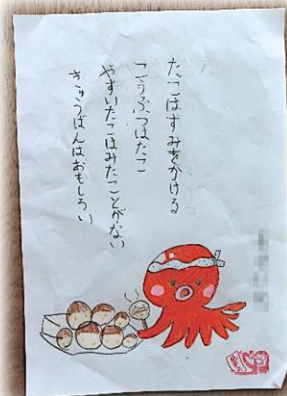 たこはすみをかける
こうぶつはたこ
やすいたこはみたことがない
きゅうばんはおもしろい